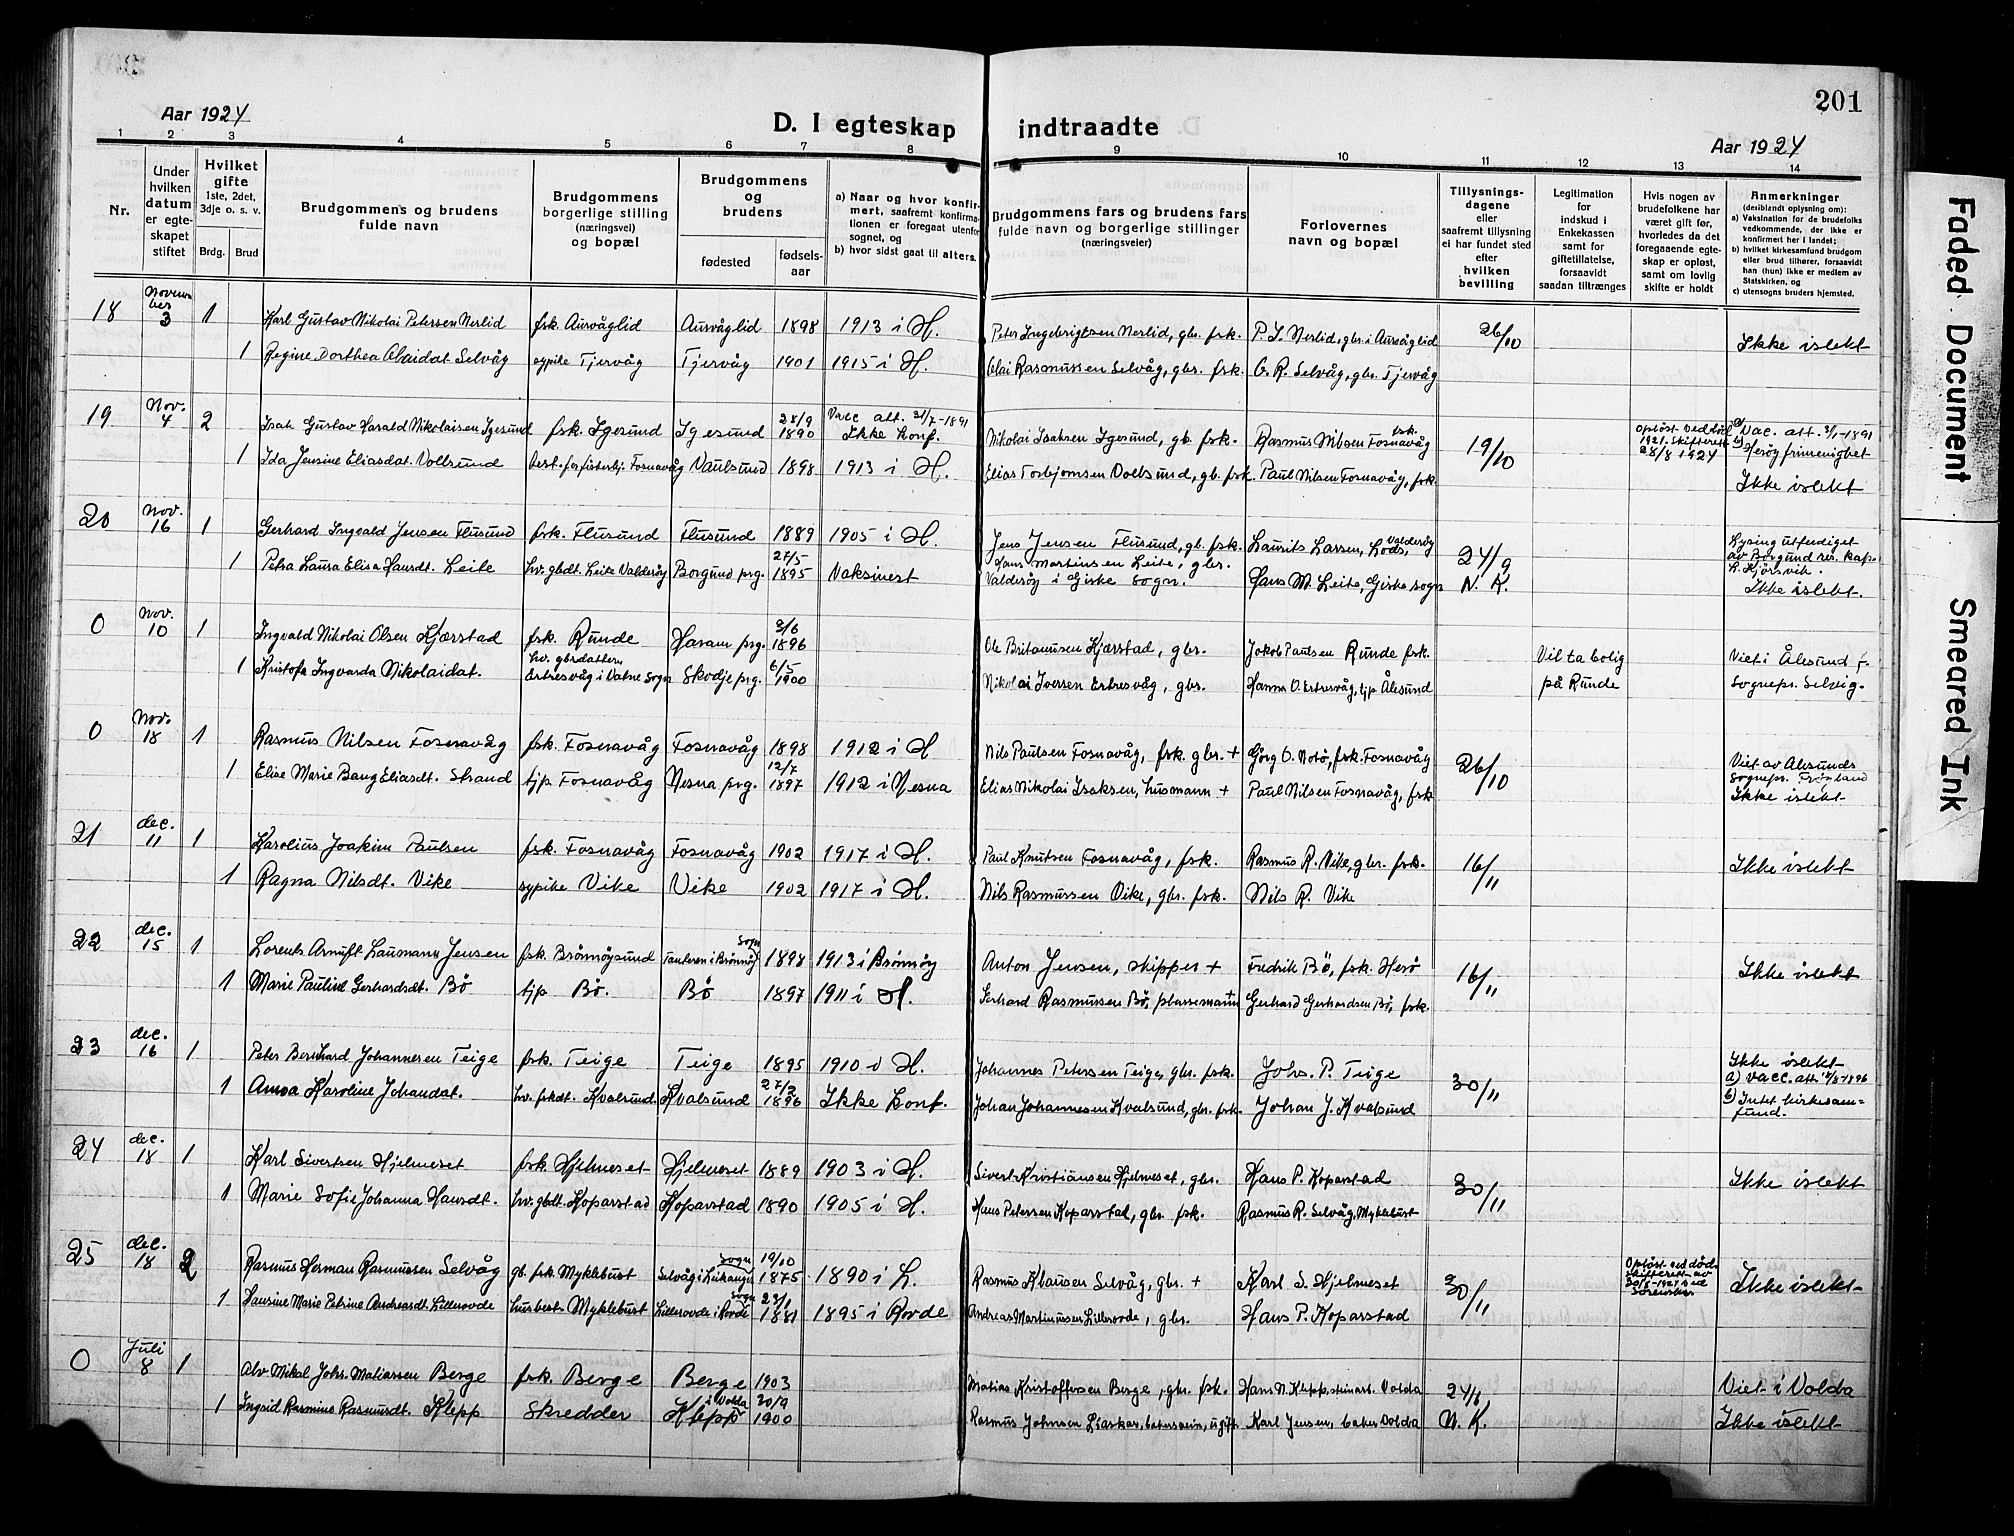 201
Aar 1924
D. I egteskap indtraadte
Aar 1924
1 2 3 4 5 6 7 8 9 10 11 12 13 14
Nr.
Under hvilken datum er egteskapet stiftet
Hvilket gifte 1ste, 2det, 3dje o. s. v.
Brdg. Brud
Brudgommens og brudens fulde navn
Brudgommens borgerlige stilling (næringsvei) og bopæl
Brudgommens og brudens
fødested fødsels-aar
a) Naar og hvor konfirmert, saafremt konfirmationen er foregaat utenfor sognet, og
b) hvor sidst gaat til alters.
Brudgommens fars og brudens fars fulde navn og borgerlige stillinger (næringsveier)
Forlovernes navn og bopæl
Tillysningsdagene eller saafremt tillysning ei har fundet sted efter hvilken bevilling
Legitimation for indskud i Enkekassen samt for giftetillatelse, forsaavidt saadan tiltrænges
Hvis nogen av brudefolkene har været gift før, hvorledes da det foregaaende egteskap er opløst, samt om lovlig skifte er holdt
Anmerkninger (deriblandt oplysning om):
a) Vaksination for de brudefolks vedkommende, der ikke er konfirmert her i landet;
b) hvilket kirkesamfund brudgom eller brud tilhører, forsaavidt han (hun) ikke er medlem av Statskirken, og
c) utensogns bruders hjemsted.
18 November 3 1 Karl Gustav Nikolai Petersen Nerlid fsk. Aurvåglid Aurvåglid 1898 1913 i H. Peter Ingebrigtsen Nerlid, gbr. fsk. P. I. Nerlid, gbr. i Aurvåglid 26/10 Ikke i slekt
1 Regine Dorthea Olaidat Selvåg sypike Tjervåg Tjervåg 1901 1915 i H. Olai Rasmussen Selvåg, gbr. fsk. O. R. Selvåg, gbr. Tjervåg
19 Nov. 4 2 Isak Gustav Harald Nikolaisen Igesund fsk. Igesund Igesund 28/9 1890 Vacc. att. 31/7-1891 Ikke konf. Nikolai Isaksen Igesund, gb. fsk. Rasmus Nilsen Fosnavåg fsk. 19/10 Opløst ved död 1921. Skifteret 28/8 1924 a) Vac. att. 31/7-1891 b) Herøy frimenighet
1 Ida Jensine Eliasdat. Voldsund Fosnavåg Vaulsund 1898 1913 i H. Elias Torbjørnsen Voldsund, gb. fsk. Paul Nilsen Fosnavåg, fsk. Ikke i slekt
20 Nov. 16 1 Gerhard Ingvald Jensen Flusund fsk. Flusund Flusund 1889 1905 i H. Jens Jensen Flusund, gb. fsk. Laurits Larsen, Lods, Valderöy 24/9 Lysing utferdiget av Borgund res. kap. L. Hjörsvik.
1 Petra Laura Elisa Hansdt. Leite hv. gbdt. Leite Valderöy Borgund prg. 27/5 1895 Vaksinert Hans Martinsen Leite, gbr. Valderöy i Giske sogn. Hans M. Leite, Giske sogn N. K. Ikke i slekt.
0 Nov. 10 1 Ingvald Nikolai Olsen Kjærstad fsk. Runde Haram prg. 2/6 1896 Ole Britanusen Kjærstad, gbr. Jakob Paulsen Runde fsk. Vil ta bolig Viet i Ålesund f.
1 Kristofa Ingvarda Nikolaidat. hv. gbrdattern Ertresvåg i Vatne Sogn Skodje prg. 6/5 1900 Nikolai Iversen Ertresvåg, gbr. Hanna O. Ertresvåg, tjp Ålesund på Runde Sognepr. Selvig.
0 Nov. 18 1 Rasmus Nilsen Fosnavåg fsk. Fosnavåg Fosnavåg 1898 1912 i H Nils Paulsen Fosnavåg, fsk. gbr. + Görg O. Notö, fsk. Fosnavåg 26/10 Viet av Ålesunds Sognepr. Frøyland
1 Elise Marie Bang Eliasdt. Strand tjp Fosnavåg Nesna prg. 12/7 1897 1912 i Nesna Elias Nikolai Isaksen, husmann + Paul Nilsen Fosnavåg, fsk Ikke i slekt
21 dec. 11 1 Karolius Joakim Paulsen fsk. Fosnavåg Fosnavåg 1902 1917 i H. Paul Knutsen Fosnavåg, fsk. Rasmus R. Vike, gbr. fsk. 16/11 Ikke i slekt
1 Ragna Nilsdt. Vike sypike Vike Vike 1902 1917 i H. Nils Rasmussen Vike, gbr. fsk. Nils R. Vike
22 dec. 15 1 Lorents Arnuft Laumann Jensen fsk. Brönnöysund i Brönnöy Sogn 1898 1913 i Brönnöy Anton Jensen, skipper + Fredrik Bö, fsk. Herö 16/11 Ikke i slekt
1 Marie Pauline Gerhardsdt. Bö tjp Bö. Bö 1897 1911 i H. Gerhard Rasmussen Bö, plassemann + Gerhard Gerhardsen Bö, fsk.
23 dec. 16 1 Peter Bernhard Johannesen Teige fsk. Teige Teige 1895 1910 i H. Johannes Petersen Teige, gbr. fsk. Johs. P. Teige 30/11 Ikke i slekt
1 Anna Karoline Johandat. hv. fskdt. Kvalsund. Kvalsund 27/2 1896 Ikke konf. Johan Johannesen Kvalsund, gbr. fsk. Johan J. Kvalsund a) vacc. att. 1896 b) Intet kirkesamfund.
24 dec. 18 1 Karl Sivertsen Hjelmeset fsk. Hjelmeset Hjelmeset 1889 1903 i H. Sivert Kristiansen Hjelmeset, gbr. Hans P. Koparstad 30/11 Ikke i slekt
1 Marie Sofie Johanna Hansdt. hv. gbdt. Koparstad Koparstad 1890 1905 i H. Hans Petersen Koparstad, gbr. fsk. Rasmus R. Selvåg, Myklebust
25 dec. 18 2 Rasmus Herman Rasmussen Selvåg gb. fsk. Myklebust Selvåg i Leikanger Sogn 19/10 1875 1890 i L. Rasmus Klausen Selvåg, gbr. + Karl S. Hjelmeset 30/11 Opløst ved död. skifterett av 1924 Ikke i slekt
1 Hansine Marie Petrine Andreasdt. Lillerovde husbest. Myklebust Lillerovde i Rovde Sogn 1881 1895 i Rovde Andreas Martinussen Lillerovde, gbr. Hans P. Koparstad
0 Juli 8 1 Alv Mikal Johs. Matiassen Berge fsk. Berge Berge 1903 Matias Kristoffersen Berge, gbr. fsk. Hans N. Klepp, Volda 24/6 Viet i Volda
1 Ingrid Rasmine Rasmusdt. Klepp Skredder Klepp i Volda 30/9 1900 Rasmus Johnsen Liaskar, ugift Karl Jensen, baker Volda N. K. Ikke i slekt
Faded Document
Smeared Ink